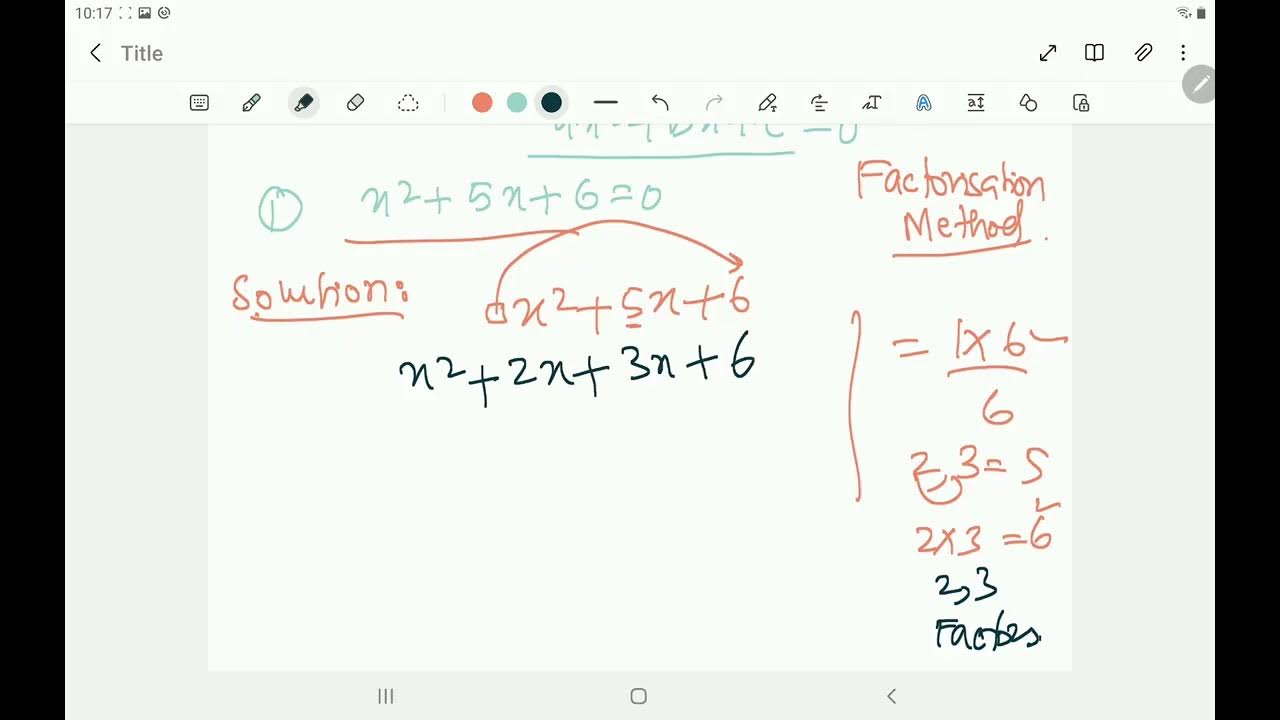 10:17
Title
① x²+5x+6=0
Factorisation
Method.
Solution:
x²+5x+6
x²+2x+3x+6
= 1×6
6
2,3=5
2×3=6
2,3
Factors